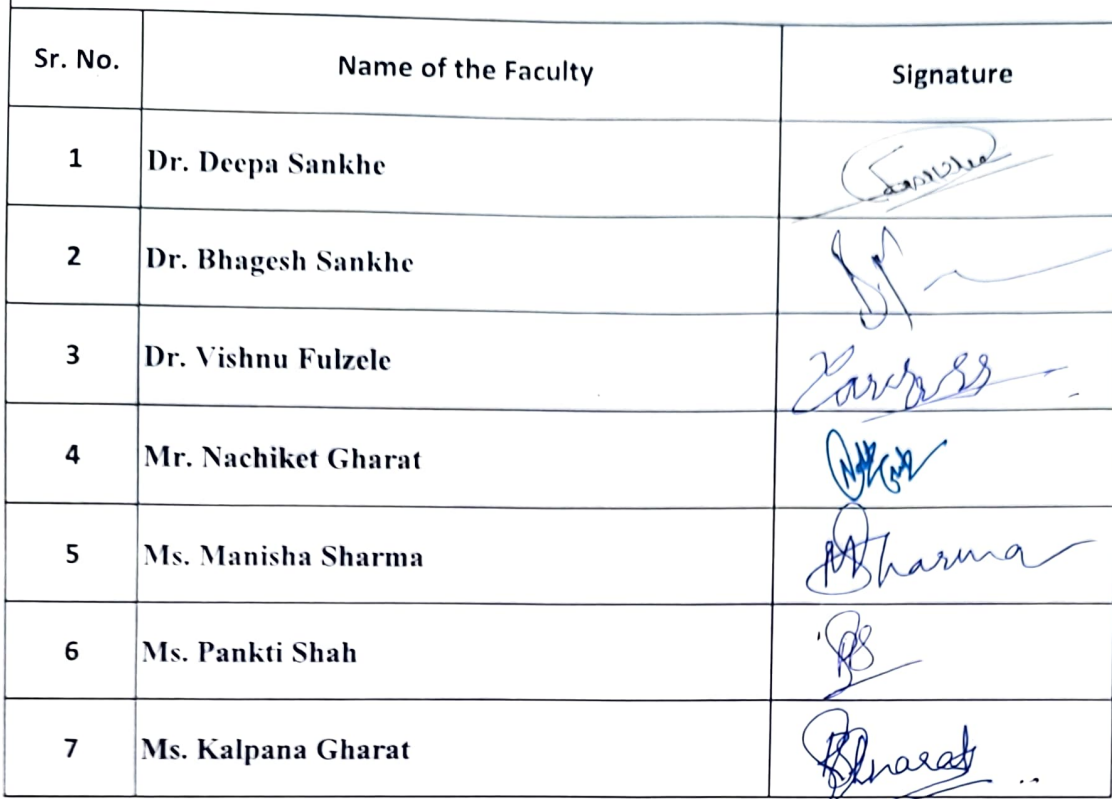 Sr. No. Name of the Faculty Signature
1 Dr. Deepa Sankhe
2 Dr. Bhagesh Sankhe
3 Dr. Vishnu Fulzele
4 Mr. Nachiket Gharat
5 Ms. Manisha Sharma MSharma
6 Ms. Pankti Shah PS
7 Ms. Kalpana Gharat